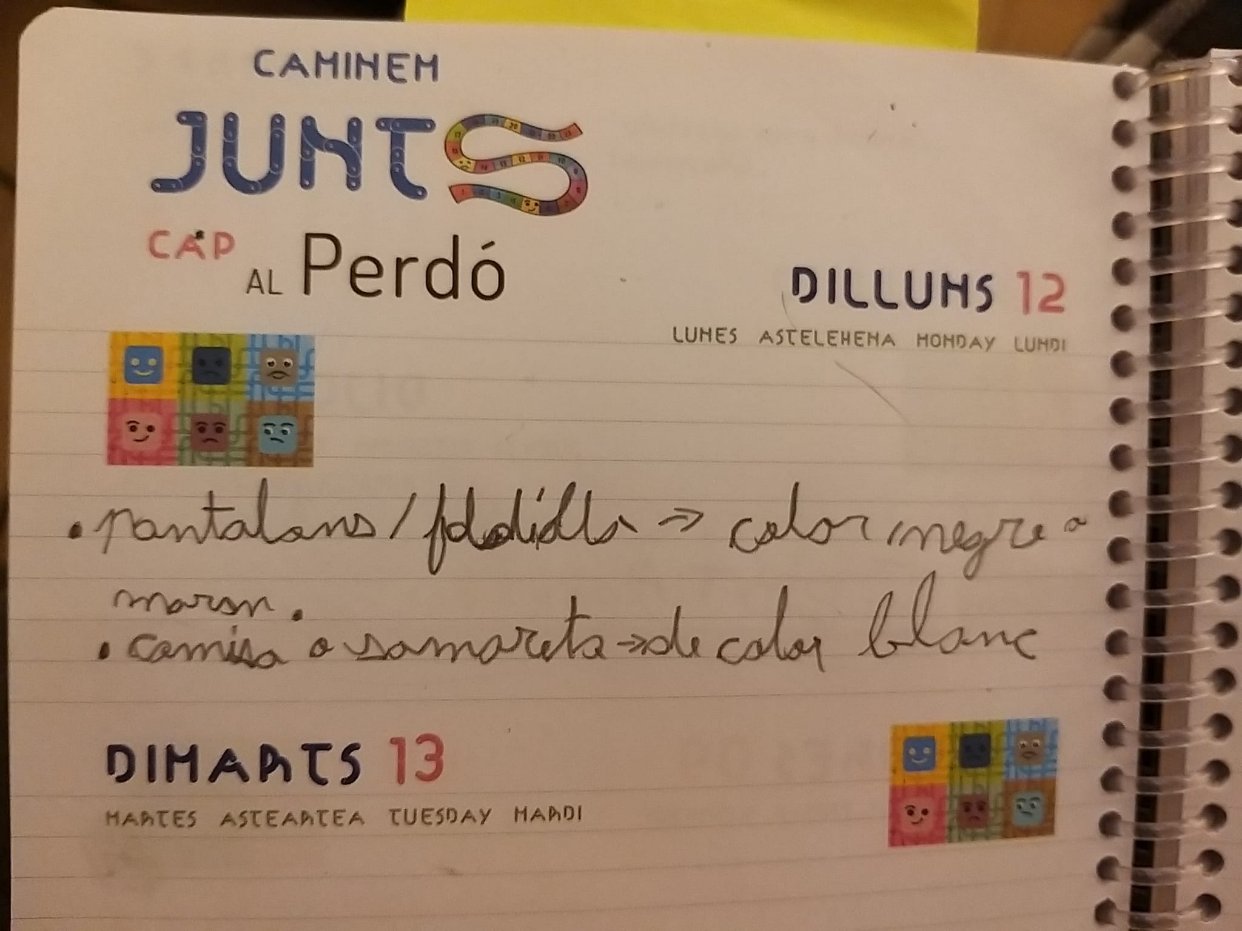 CAMINEM
JUNTS
CAP AL Perdó
DILLUNS 12
LUNES ASTELEHENA MONDAY LUNDI
• pantalons / faldilla → color negre o
marron.
• camisa o samarreta → de color blanc
DIMARTS 13
MARTES ASTEARTEA TUESDAY MARDI